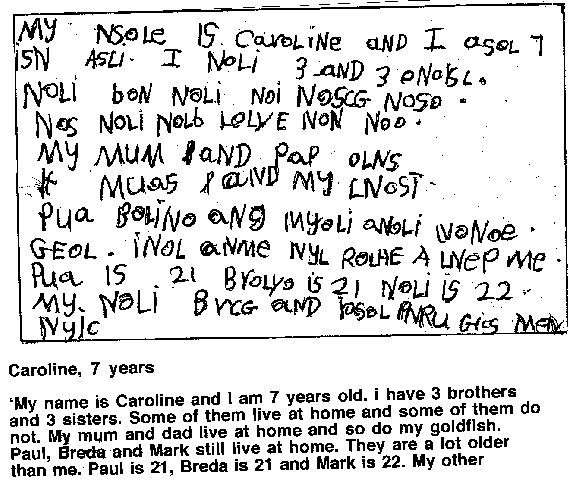 MY NSOLE IS CaroliNe aND I asoL 7
iSN ASLi. I NOLi 3 AND 3 ONOLSL.
NOLi bON NOLi NOi NOSCG NOSO.
NOS NOLi NOLb LOLVE NON NOO.
MY MUM PaND PaP OLNS
MUaS PaND MY LNOST.
PUa BOLiNO aNG MYOLi aNOLi WONOE.
GEOL. iNOL aNME NYL ROLHE A LNEP ME.
PUa IS 21 BrOLYO iS 21 NOLi iS 22.
MY. NOLi BVCG aND PNRU Gics MEN
NYJC
Caroline, 7 years
'My name is Caroline and I am 7 years old. i have 3 brothers
and 3 sisters. Some of them live at home and some of them do
not. My mum and dad live at home and so do my goldfish.
Paul, Breda and Mark still live at home. They are a lot older
than me. Paul is 21, Breda is 21 and Mark is 22. My other